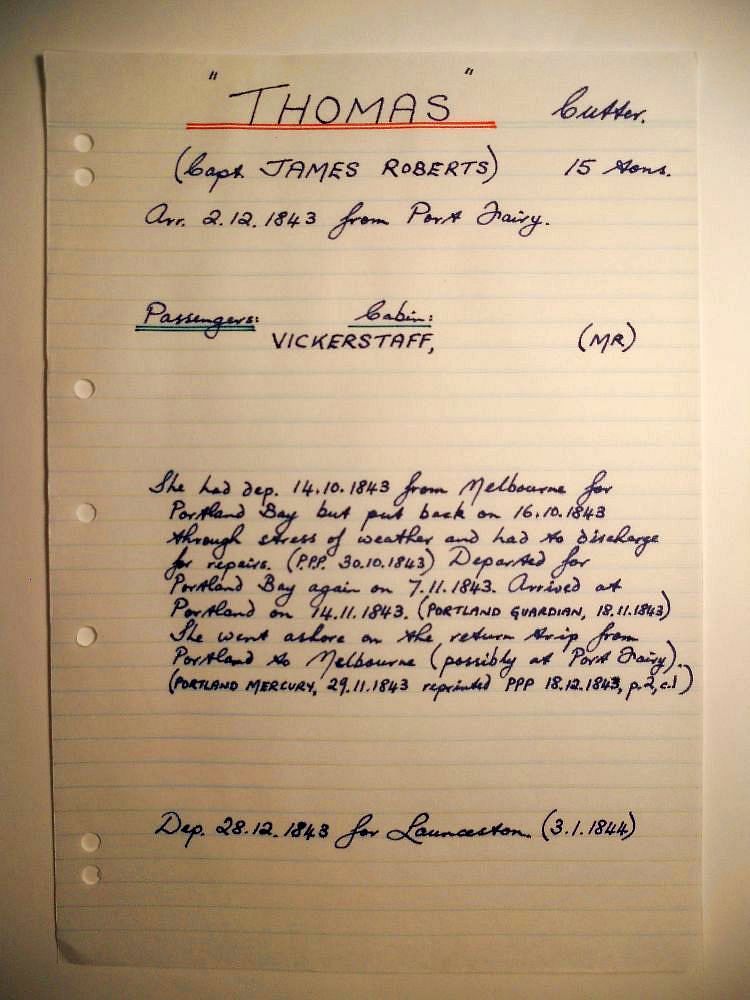 "THOMAS" Cutter.
(Capt JAMES ROBERTS) 15 tons.
Arr. 2.12.1843 from Port Fairy.
Passengers: Cabin:
VICKERSTAFF, (MR)
She had dep. 14.10.1843 from Melbourne for
Portland Bay but put back on 16.10.1843
through stress of weather and had to discharge
for repairs. (PPP. 30.10.1843) Departed for
Portland Bay again on 7.11.1843. Arrived at
Portland on 14.11.1843. (PORTLAND GUARDIAN, 18.11.1843)
She went ashore on the return trip from
Portland to Melbourne (possibly at Port Fairy).
(PORTLAND MERCURY, 29.11.1843 reprinted PPP 18.12.1843, p.2, c.1)
Dep. 28.12.1843 for Launceston. (3.1.1844)